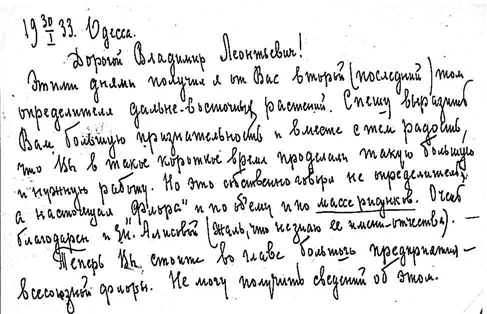 19 30/I 33. Одесса.
Дорогой Владимир Леонтьевич!
Этими днями получил я от Вас второй (последний) том
определителя дальне-восточных растений. Спешу выразить
Вам большую признательность и вместе с тем радость,
что Вы в такое короткое время проделали такую большую
и нужную работу. Но это собственно говоря не определитель,
а настоящая "Флора" и по объему и по массе рисунков. Очень
благодарен и Алисовой (жаль, что не знаю ее имени-отчества). —
Теперь Вы стоите во главе большого предприятия —
всесоюзной флоры. Не могу получить сведений об этом.